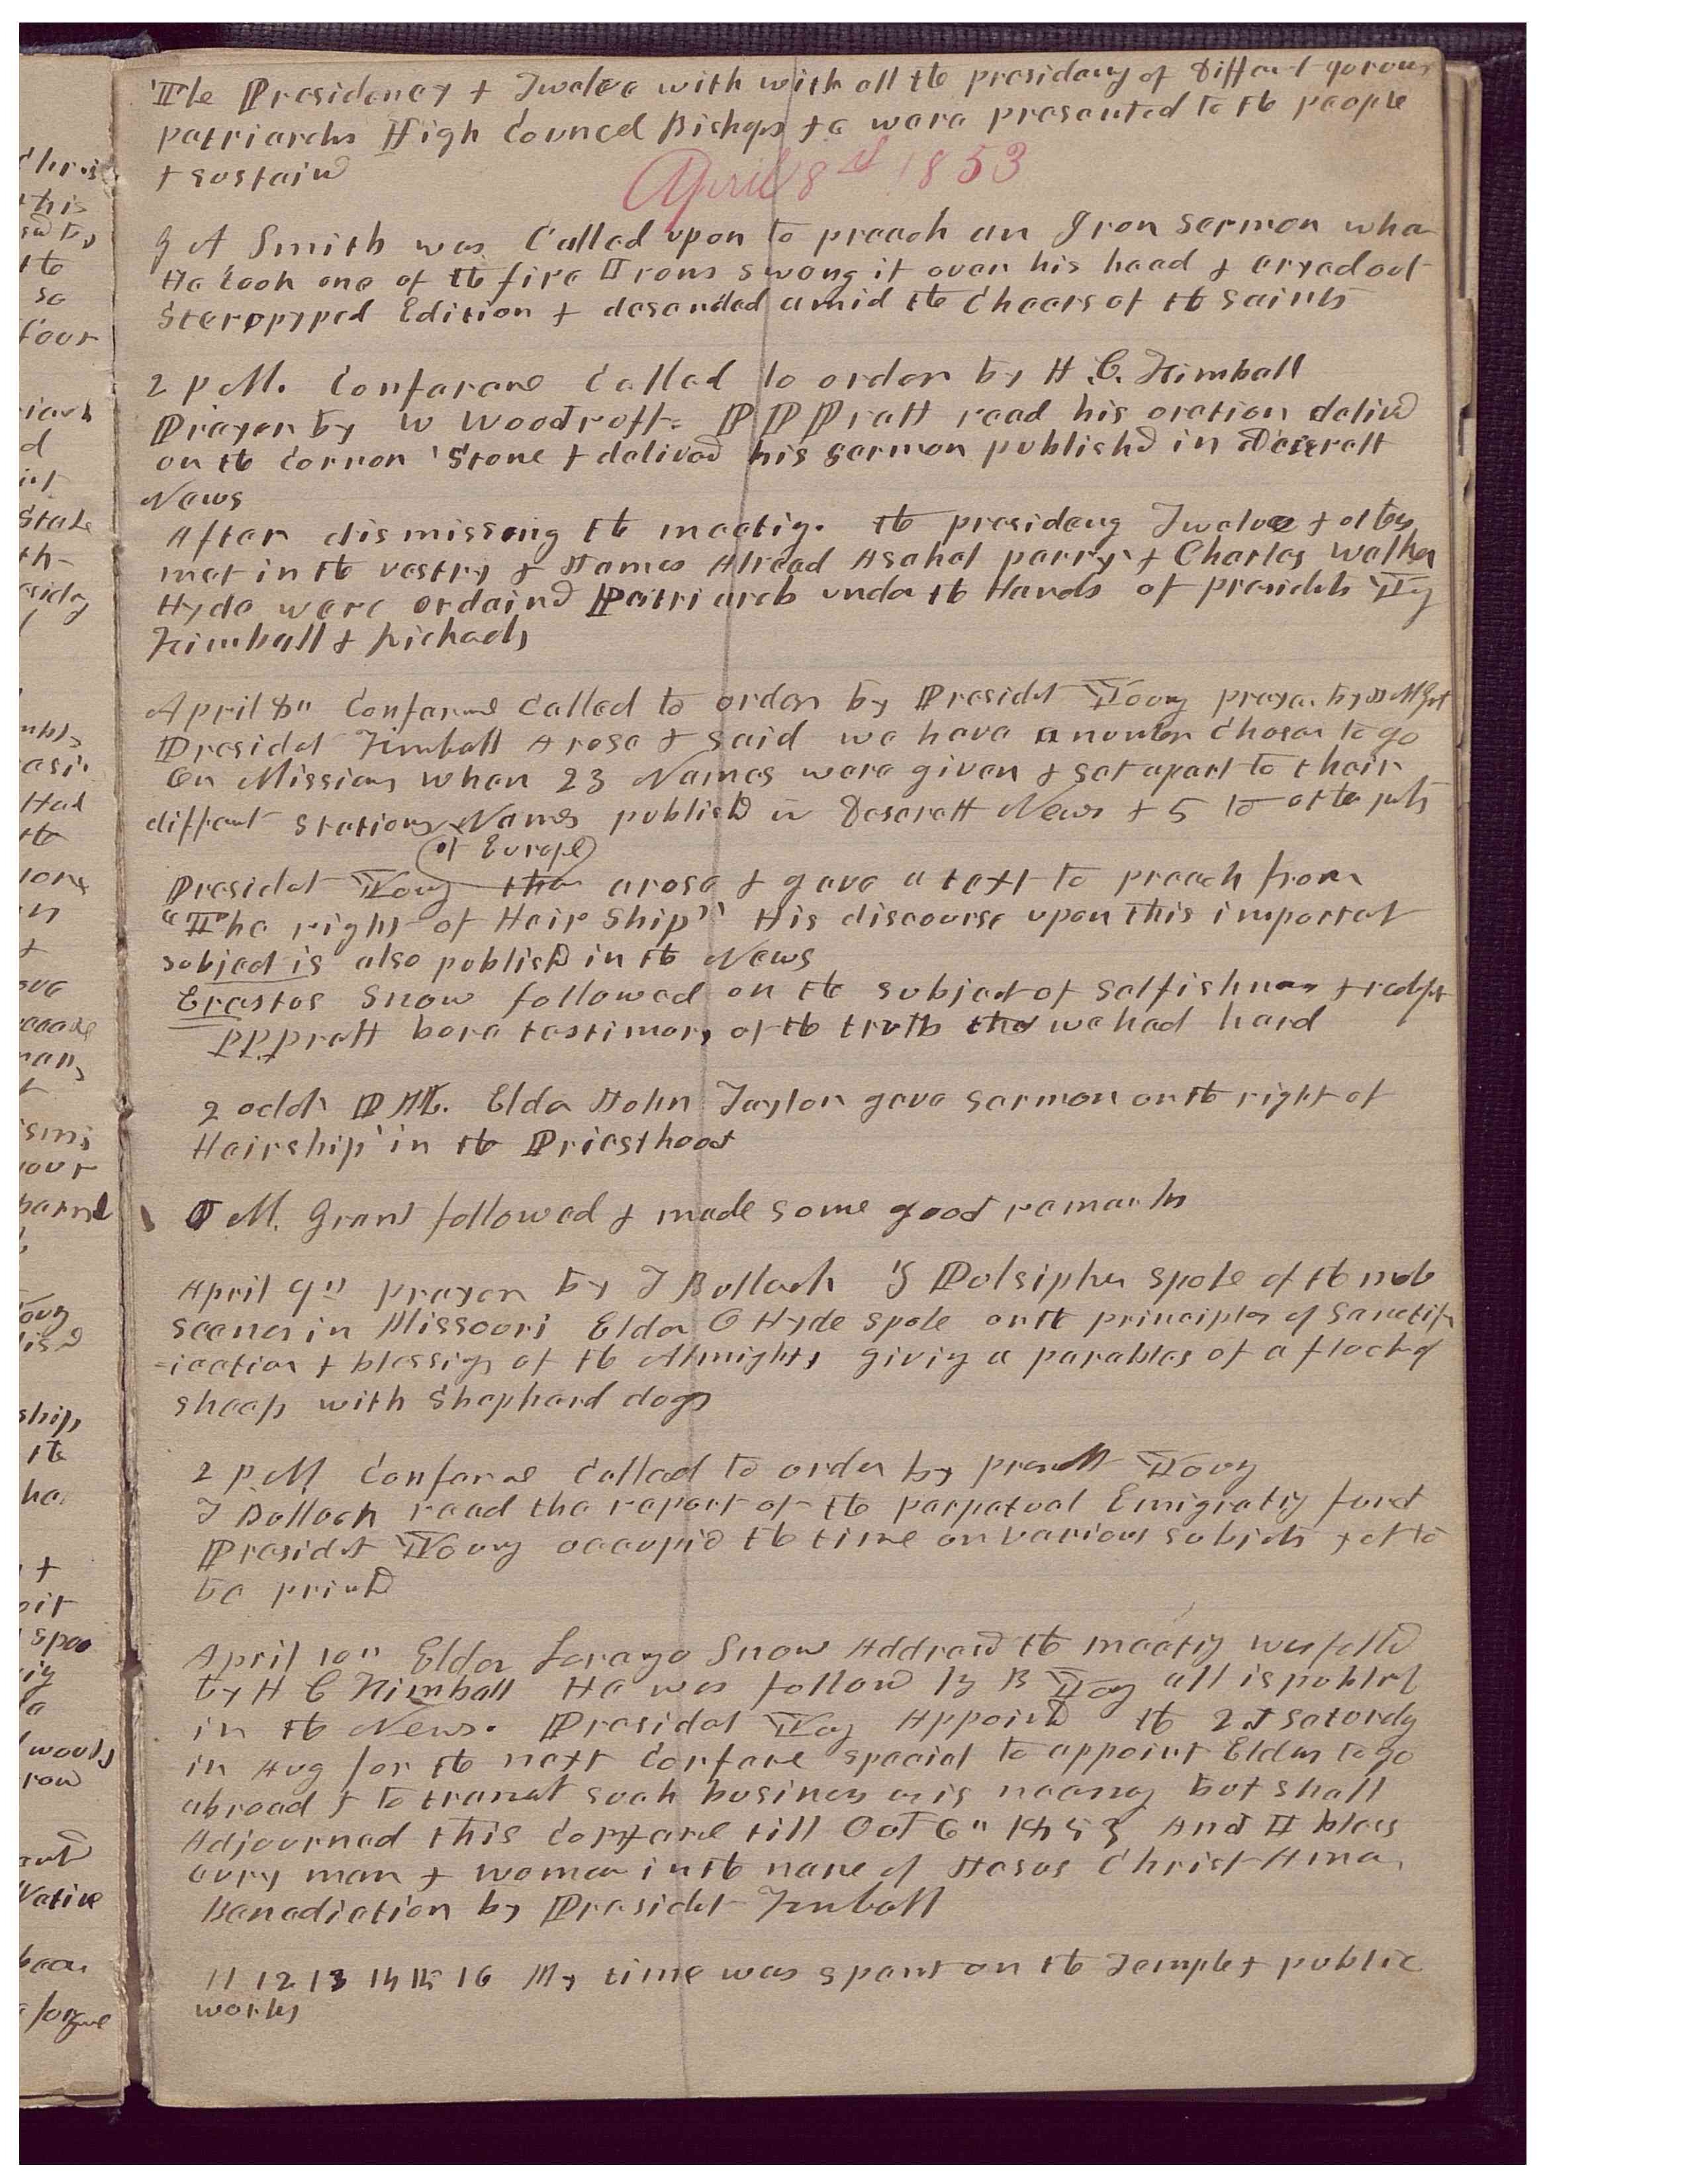 The Presidency & Twelve with with all the presidency of Differt qorous
patriarchs High Council Bishops &c were presented to the people
& sustaind
April 8th 1853
G A Smith was Called upon to preach an Iron sermon when
He took one of the fire Irons swong it over his head & cryed out
Steropyped Edition & desended amid the Cheers of the saints
2 P M. Conferene Called to order by H. C. Kimball
Prayer by W Woodruff. P P Pratt read his oration delivd
on the Cornor Stone & delivered his sermon publishd in Deserett
News
After dismissing the meetig. the presideny Twelve & others
met in the vestry & James Alread Asahel parry & Charles Walker
Hyde were ordaind Patriarch under the Hands of presidets Yg
Kimball & Richads
April 8" Conferene Called to order by Presidet Young prayer by
Presidet Kimball Arose & said we have a number Chosen to go
On Missions when 23 Names were given & set apart to their
differnt Stations Names publishd in Deserett News & 5 to other pts
of Europe
Presidet Young then arose & gave a text to preach from
"The right of Heir Ship" His discourse upon this importat
subject is also publishd in the News
Erastos Snow followed on the subject of selfishness &
P P Pratt bore testimony of the truth that we had hard
2 oclok P M. Elder John Taylor gave sermon on the right of
Heirship in the Priesthood
J M. Grant followed & made some good remarks
April 9" prayer by T Bullock Z Pulsipher spoke of the mob
scenes in Missouri Elder O Hyde spoke on the principles of Sanctifi
=ication & blessigs of the Almighty givig a parables of a flock of
sheep with Shephard dogs
2 P M Conferene Called to order by presdt Young
T Bullock read the report of the perpetual Emigratig fund
Presidet Young occupid the time on various subjects yet to
be printd
April 10" Elder Lorenzo Snow Addresd the meetig was folld
by H C Kimball He was followd by B Yog all is publshd
in the News. Presidet Yog Appointd the 2d saturdy
in Aug for the next Confere special to appoint Elders to go
abroad & to transat such business as is necesny but shall
Adjourned this Confrane till Oct 6" 1853 And I bless
evry man & woman in the name of Jesus Christ Amen
Benediction by Presidet Kimball
11 12 13 14 15 16 My time was spent on the Temple & public
works